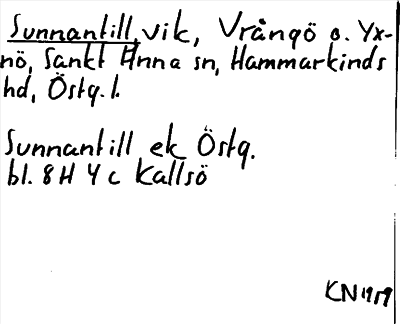 Sunnantill, vik, Vrångö o. Yx-
nö, Sankt Anna sn, Hammarkinds
hd, Östg. l.
Sunnantill ek Östg.
bl. 8H 4c Kallsö
KN 1959